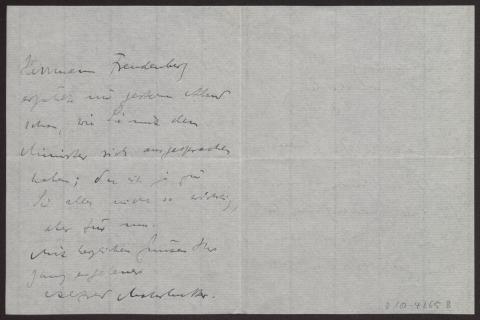 Herrmann Freudenberg
erzählte mir gestern Abend
schon, wie Sie mit dem
Minister sich ausgesprochen
haben; das ist ja für
Sie alles nicht so wichtig,
aber für uns.
Mit herzlichen Grüßen Ihr
ganz ergebener